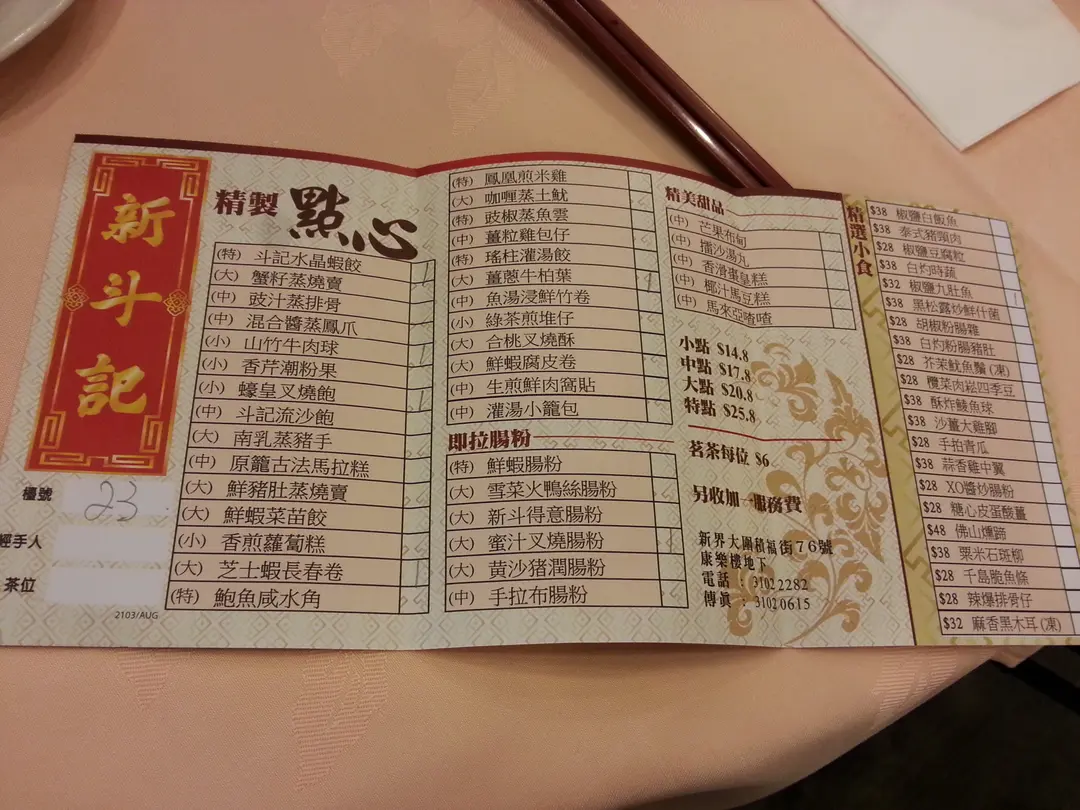 新斗記
檯號 23
經手人
茶位
2103/AUG
精製 點心
(特) 斗記水晶蝦餃
(大) 蟹籽蒸燒賣
(中) 豉汁蒸排骨
(中) 混合醬蒸鳳爪
(小) 山竹牛肉球
(小) 香芹潮粉果
(小) 蠔皇叉燒飽
(中) 斗記流沙飽
(大) 南乳蒸豬手
(中) 原籠古法馬拉糕
(大) 鮮豬肚蒸燒賣
(大) 鮮蝦菜苗餃
(小) 香煎蘿蔔糕
(大) 芝士蝦長春卷
(特) 鮑魚咸水角
(特) 鳳凰煎米雞
(大) 咖喱蒸土魷
(特) 豉椒蒸魚雲
(中) 薑粒雞包仔
(特) 瑤柱灌湯餃
(大) 薑蔥牛柏葉
(中) 魚湯浸鮮竹卷
(小) 綠茶煎堆仔
(大) 合桃叉燒酥
(大) 鮮蝦腐皮卷
(中) 生煎鮮肉窩貼
(中) 灌湯小籠包
即拉腸粉
(特) 鮮蝦腸粉
(大) 雪菜火鴨絲腸粉
(大) 新斗得意腸粉
(大) 蜜汁叉燒腸粉
(大) 黃沙豬潤腸粉
(中) 手拉布腸粉
精美甜品
(中) 芒果布甸
(中) 擂沙湯丸
(中) 香滑蛋皇糕
(中) 椰汁馬豆糕
(中) 馬來亞喳喳
小點 $14.8
中點 $17.8
大點 $20.8
特點 $25.8
茗茶每位 $6
另收加一服務費
新界大圍積福街76號
康樂樓地下
電話 : 3102 2282
傳真 : 3102 0615
精選小食
$38 椒鹽白飯魚
$38 泰式豬頸肉
$28 椒鹽豆腐粒
$38 白灼時蔬
$32 椒鹽九肚魚
$38 黑松露炒鮮什菌
$28 胡椒粉腸雞
$38 白灼粉腸豬肚
$28 芥茉魷魚鬚 (凍)
$28 欖菜肉崧四季豆
$38 酥炸鯪魚球
$38 沙薑大雞腳
$28 手拍青瓜
$38 蒜香雞中翼
$28 XO醬炒腸粉
$28 糖心皮蛋酸薑
$48 佛山燻蹄
$38 粟米石斑柳
$28 千島脆魚條
$28 辣爆排骨仔
$32 麻香黑木耳 (凍)